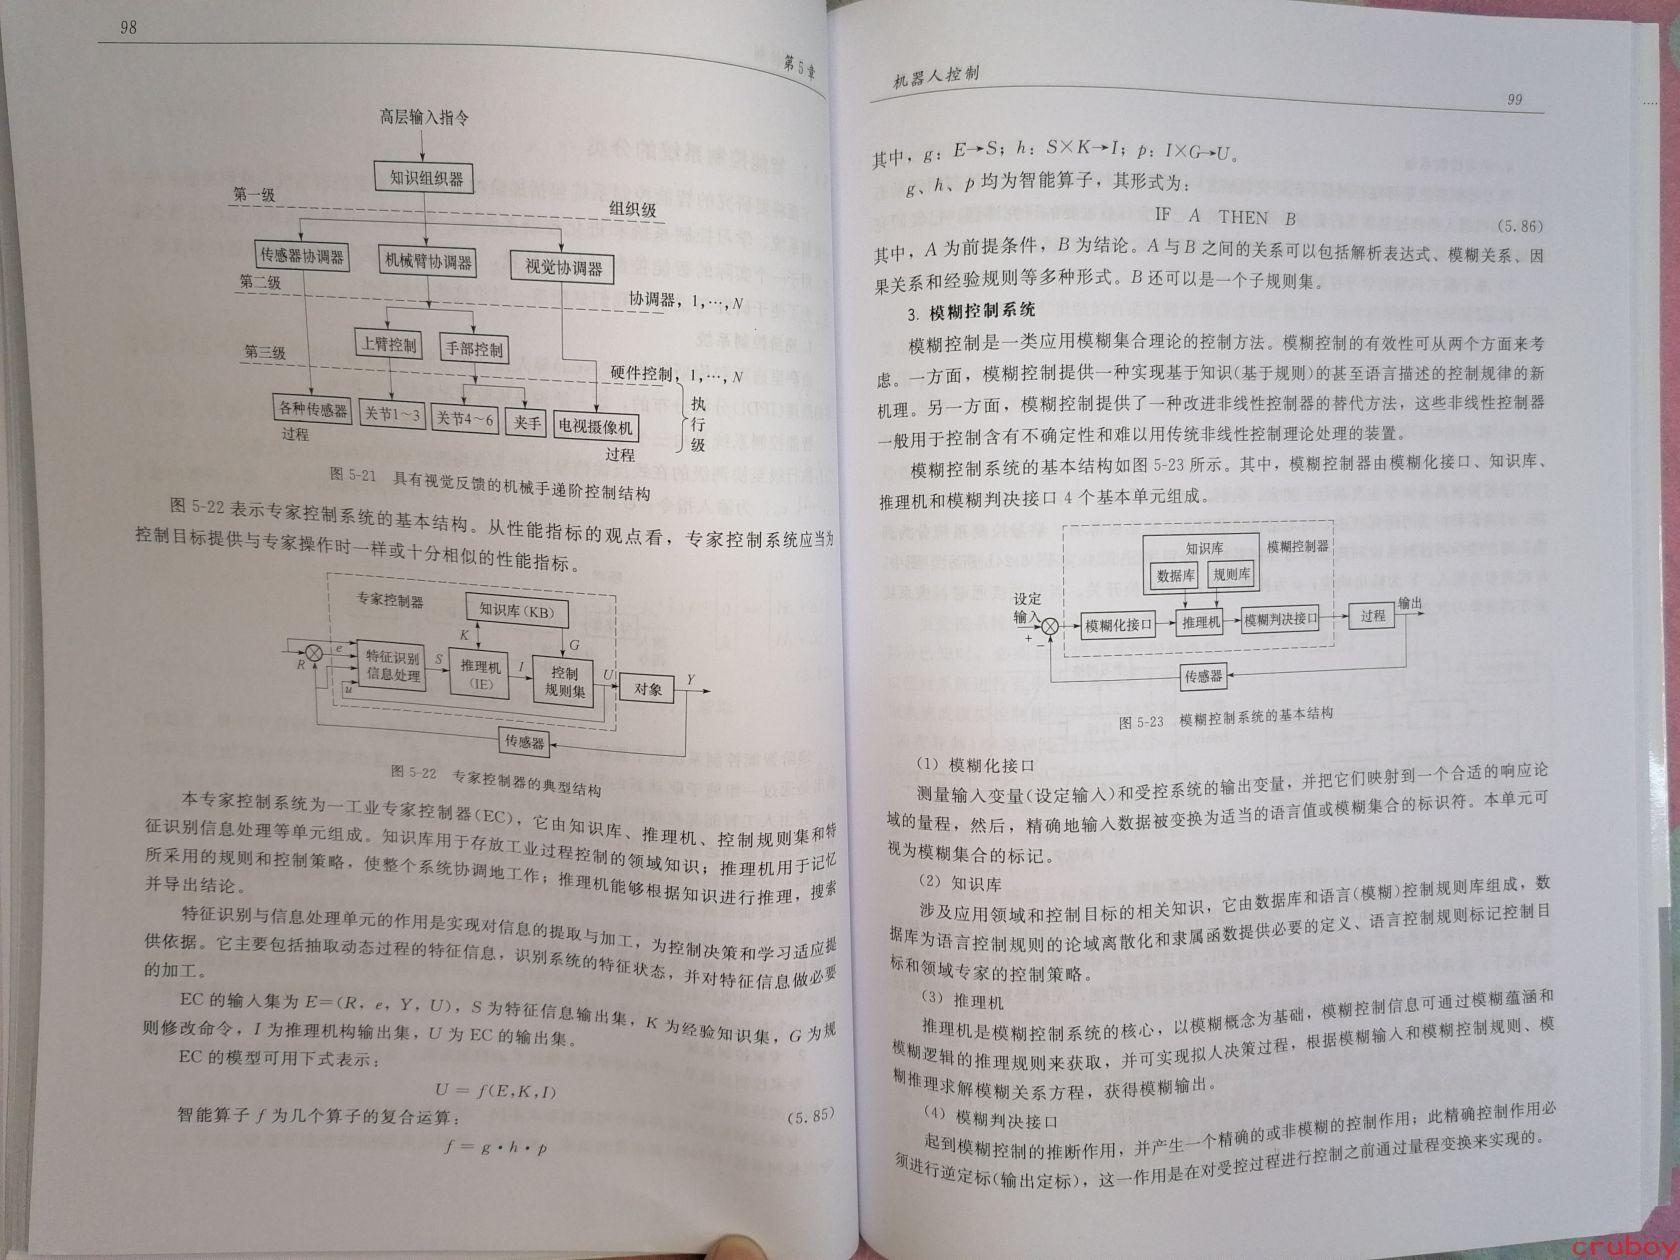 98
第5章
高层输入指令
知识组织器
第一级
组织级
传感器协调器
机械臂协调器
视觉协调器
第二级
协调器，1，…，N
上臂控制
手部控制
第三级
硬件控制，1，…，N
各种传感器
关节1～3
关节4～6
夹手
电视摄像机
执行级
过程
过程
图 5-21 具有视觉反馈的机械手递阶控制结构
图 5-22 表示专家控制系统的基本结构。从性能指标的观点看，专家控制系统应当为
控制目标提供与专家操作时一样或十分相似的性能指标。
专家控制器
知识库(KB)
K
G
R
e
特征识别
信息处理
S
推理机
(IE)
I
控制
规则集
U
对象
Y
u
传感器
图 5-22 专家控制器的典型结构
本专家控制系统为一工业专家控制器(EC)，它由知识库、推理机、控制规则集和特
征识别信息处理等单元组成。知识库用于存放工业过程控制的领域知识；推理机用于记忆
所采用的规则和控制策略，使整个系统协调地工作；推理机能够根据知识进行推理，搜索
并导出结论。
特征识别与信息处理单元的作用是实现对信息的提取与加工，为控制决策和学习适应提
供依据。它主要包括抽取动态过程的特征信息，识别系统的特征状态，并对特征信息做必要
的加工。
EC 的输入集为 E＝(R，e，Y，U)，S 为特征信息输出集，K 为经验知识集，G 为规
则修改命令，I 为推理机构输出集，U 为 EC 的输出集。
EC 的模型可用下式表示：
U = f(E,K,I)
(5.85)
智能算子 f 为几个算子的复合运算：
f = g·h·p
机器人控制
99
其中，g：E→S；h：S×K→I；p：I×G→U。
g、h、p 均为智能算子，其形式为：
IF A THEN B
(5.86)
其中，A 为前提条件，B 为结论。A 与 B 之间的关系可以包括解析表达式、模糊关系、因
果关系和经验规则等多种形式。B 还可以是一个子规则集。
3. 模糊控制系统
模糊控制是一类应用模糊集合理论的控制方法。模糊控制的有效性可从两个方面来考
虑。一方面，模糊控制提供一种实现基于知识(基于规则)的甚至语言描述的控制规律的新
机理。另一方面，模糊控制提供了一种改进非线性控制器的替代方法，这些非线性控制器
一般用于控制含有不确定性和难以用传统非线性控制理论处理的装置。
模糊控制系统的基本结构如图 5-23 所示。其中，模糊控制器由模糊化接口、知识库、
推理机和模糊判决接口 4 个基本单元组成。
知识库
模糊控制器
数据库
规则库
设定
输入
+
−
模糊化接口
推理机
模糊判决接口
过程
输出
传感器
图 5-23 模糊控制系统的基本结构
(1) 模糊化接口
测量输入变量(设定输入)和受控系统的输出变量，并把它们映射到一个合适的响应论
域的量程，然后，精确地输入数据被变换为适当的语言值或模糊集合的标识符。本单元可
视为模糊集合的标记。
(2) 知识库
涉及应用领域和控制目标的相关知识，它由数据库和语言(模糊)控制规则库组成，数
据库为语言控制规则的论域离散化和隶属函数提供必要的定义、语言控制规则标记控制目
标和领域专家的控制策略。
(3) 推理机
推理机是模糊控制系统的核心，以模糊概念为基础，模糊控制信息可通过模糊蕴涵和
模糊逻辑的推理规则来获取，并可实现拟人决策过程，根据模糊输入和模糊控制规则、模
糊推理求解模糊关系方程，获得模糊输出。
(4) 模糊判决接口
起到模糊控制的推断作用，并产生一个精确的或非模糊的控制作用；此精确控制作用必
须进行逆定标(输出定标)，这一作用是在对受控过程进行控制之前通过量程变换来实现的。
cruboy